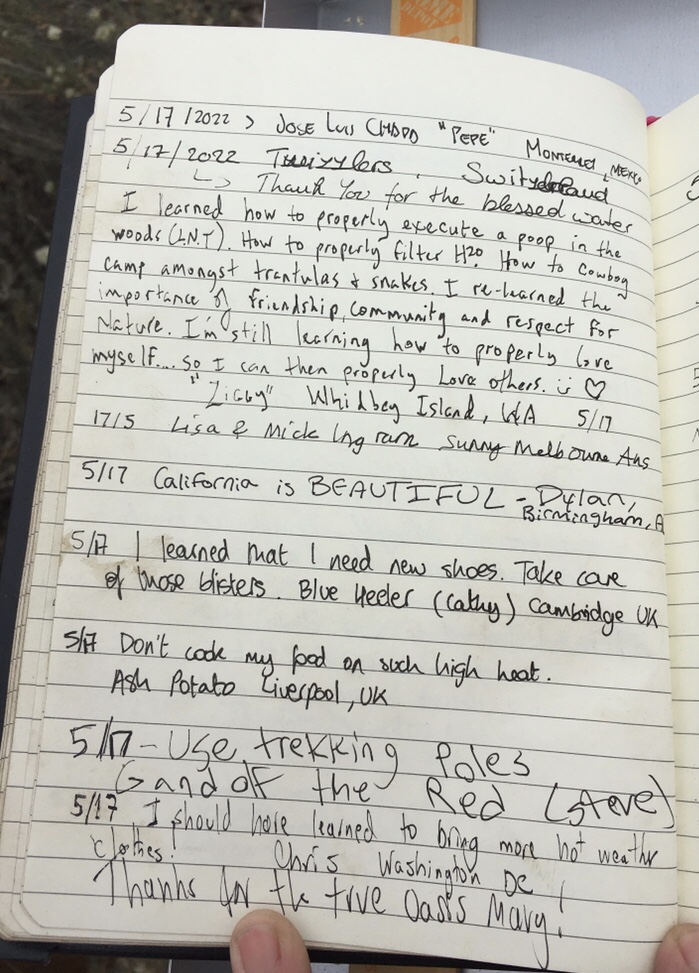 5/17/2022 > JOSE LUIS "PEPE" MONTERREY, MEXICO
5/17/2022 Twizzlers. Switzerland
↳ Thank You for the blessed water
I learned how to properly execute a poop in the
woods (L.N.T). How to properly filter H2O. How to Cowboy
camp amongst trantulas & snakes. I re-learned the
importance of friendship, community and respect for
Nature. I'm still learning how to properly love
myself... so I can then properly Love others. ü ♡
"Ziggy" Whidbey Island, WA 5/17
17/5 Lisa & Mick Ingram Sunny Melbourne Aus
5/17 California is BEAUTIFUL - Dylan,
Birmingham, A
5/17 I learned that I need new shoes. Take care
of those blisters. Blue Heeler (Cathy) Cambridge UK
5/17 Don't cook my food on such high heat.
Ash Potato Liverpool, UK
5/17 - Use trekking Poles
Gandolf the Red (Steve)
5/17 I should have learned to bring more hot weather
clothes! Chris Washington DC
Thanks for the true Oasis Mary!